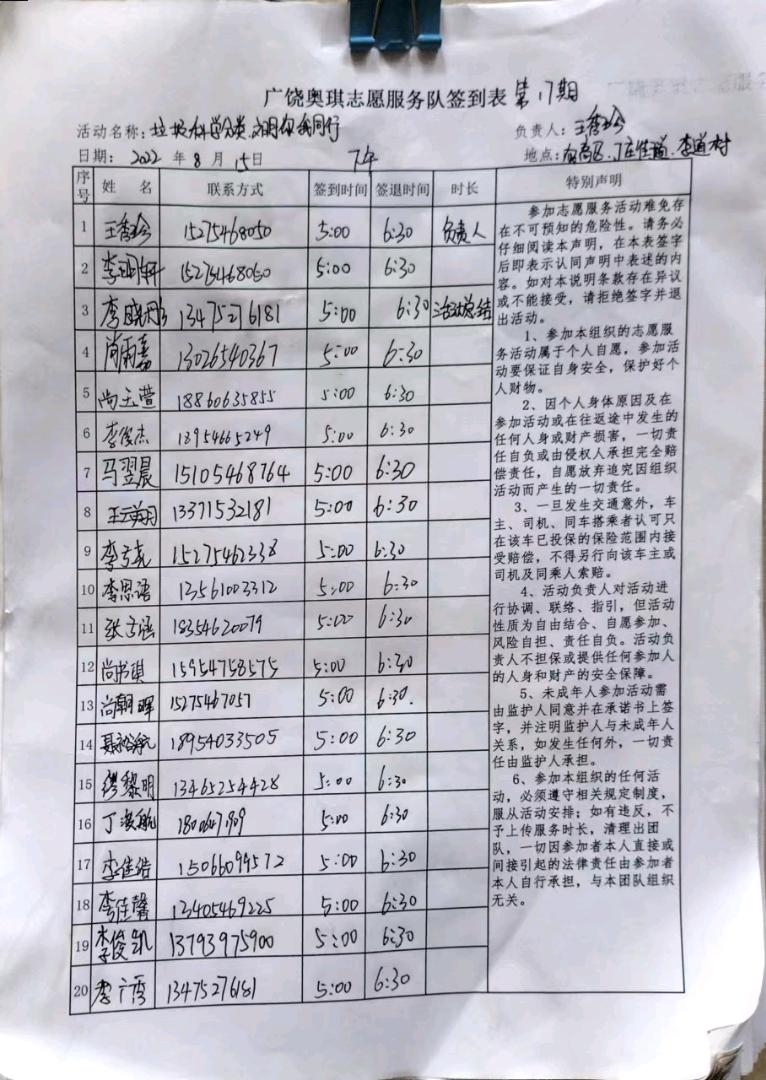 广饶奥琪志愿服务队签到表 第17期
活动名称：垃圾科学分类，文明你我同行
负责人：王秀玲
日期：2022年8月15日 下午
地点：
序号 姓名 联系方式 签到时间 签退时间 时长 特别声明
1 15275468050 5:00 6:30 负责人
2 15275468050 5:00 6:30
3 李晓彤 13475276181 5:00 6:30 活动总结
4 尚雨嘉 13026540367 5:00 6:30
5 尚玉萱 18860635855 5:00 6:30
6 李俊杰 13954665249 5:00 6:30
7 马翌晨 15105468764 5:00 6:30
8 13371532181 5:00 6:30
9 15275462338 5:00 6:30
10 李思语 13561003312 5:00 6:30
11 18354620079 5:00 6:30
12 尚书琪 15954758575 5:00 6:30
13 尚朝晖 15275467057 5:00 6:30.
14 18954033505 5:00 6:30
15 13465254428 5:00 6:30
16 5:00 6:30
17 李佳皓 15066099572 5:00 6:30
18 李佳馨 13405469225 5:00 6:30
19 李俊凯 13793975900 5:00 6:30
20 13475276181 5:00 6:30
参加志愿服务活动难免存
在不可预知的危险性。请务必
仔细阅读本声明，在本表签字
后即表示认同声明中表述的内
容。如对本说明条款存在异议
或不能接受，请拒绝签字并退
出活动。
1、参加本组织的志愿服
务活动属于个人自愿，参加活
动要保证自身安全，保护好个
人财物。
2、因个人身体原因及在
参加活动或在往返途中发生的
任何人身或财产损害，一切责
任自负或由侵权人承担完全赔
偿责任，自愿放弃追究因组织
活动而产生的一切责任。
3、一旦发生交通意外，车
主、司机、同车搭乘者认可只
在该车已投保的保险范围内接
受赔偿，不得另行向该车主或
司机及同乘人索赔。
4、活动负责人对活动进
行协调、联络、指引，但活动
性质为自由结合、自愿参加、
风险自担、责任自负。活动负
责人不担保或提供任何参加人
的人身和财产的安全保障。
5、未成年人参加活动需
由监护人同意并在承诺书上签
字，并注明监护人与未成年人
关系，如发生任何外，一切责
任由监护人承担。
6、参加本组织的任何活
动，必须遵守相关规定制度，
服从活动安排；如有违反，不
予上传服务时长，清理出团
队，一切因参加者本人直接或
间接引起的法律责任由参加者
本人自行承担，与本团队组织
无关。